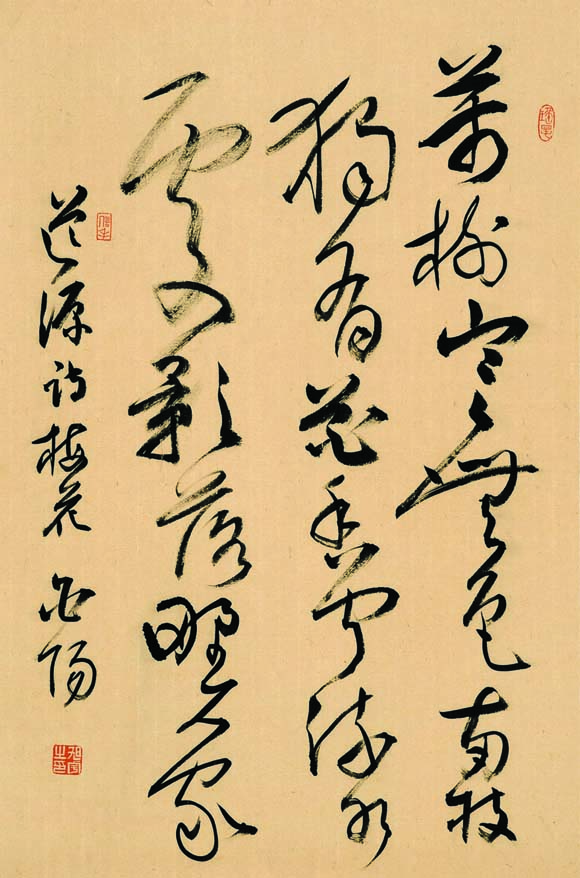 萬樹寒無色南枝
獨有花香聞流水
處影落野人家
道源詩梅花 陽